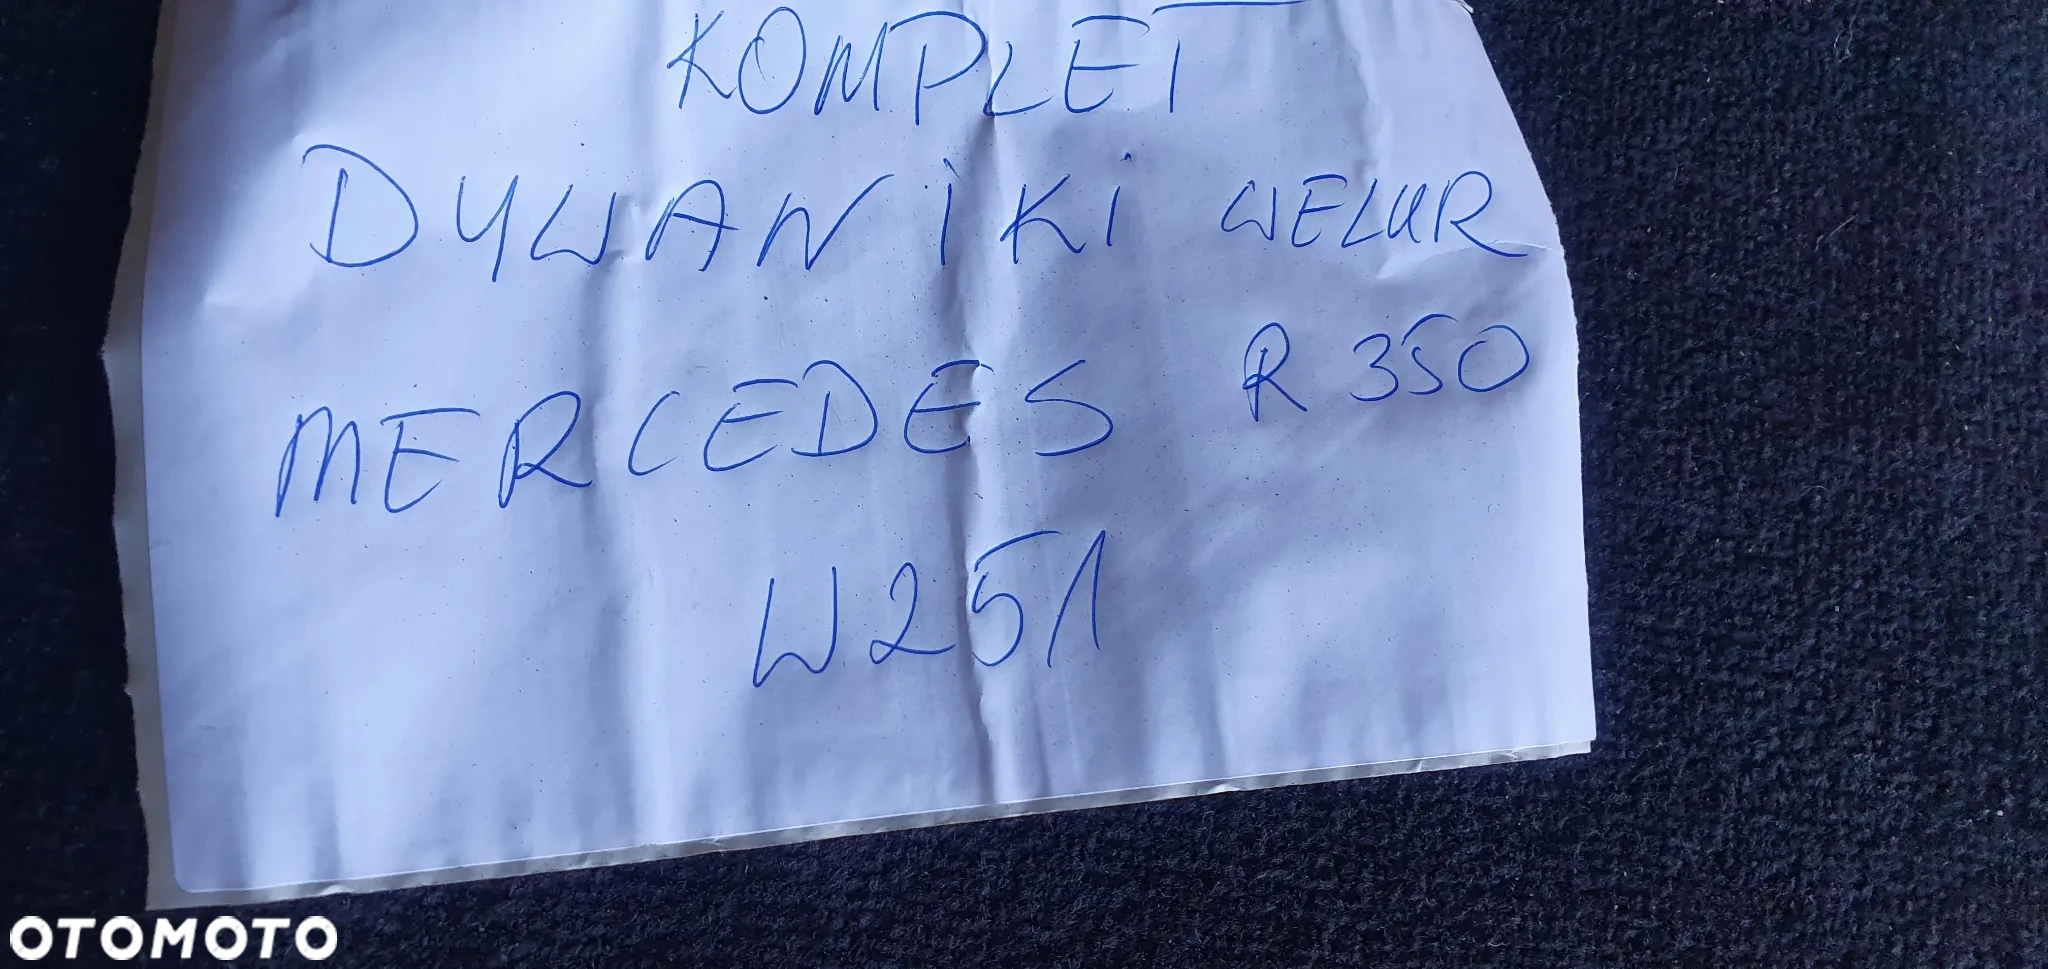 KOMPLET
DYWANiKi WELUR
MERCEDES R 350
W251
OTOMOTO